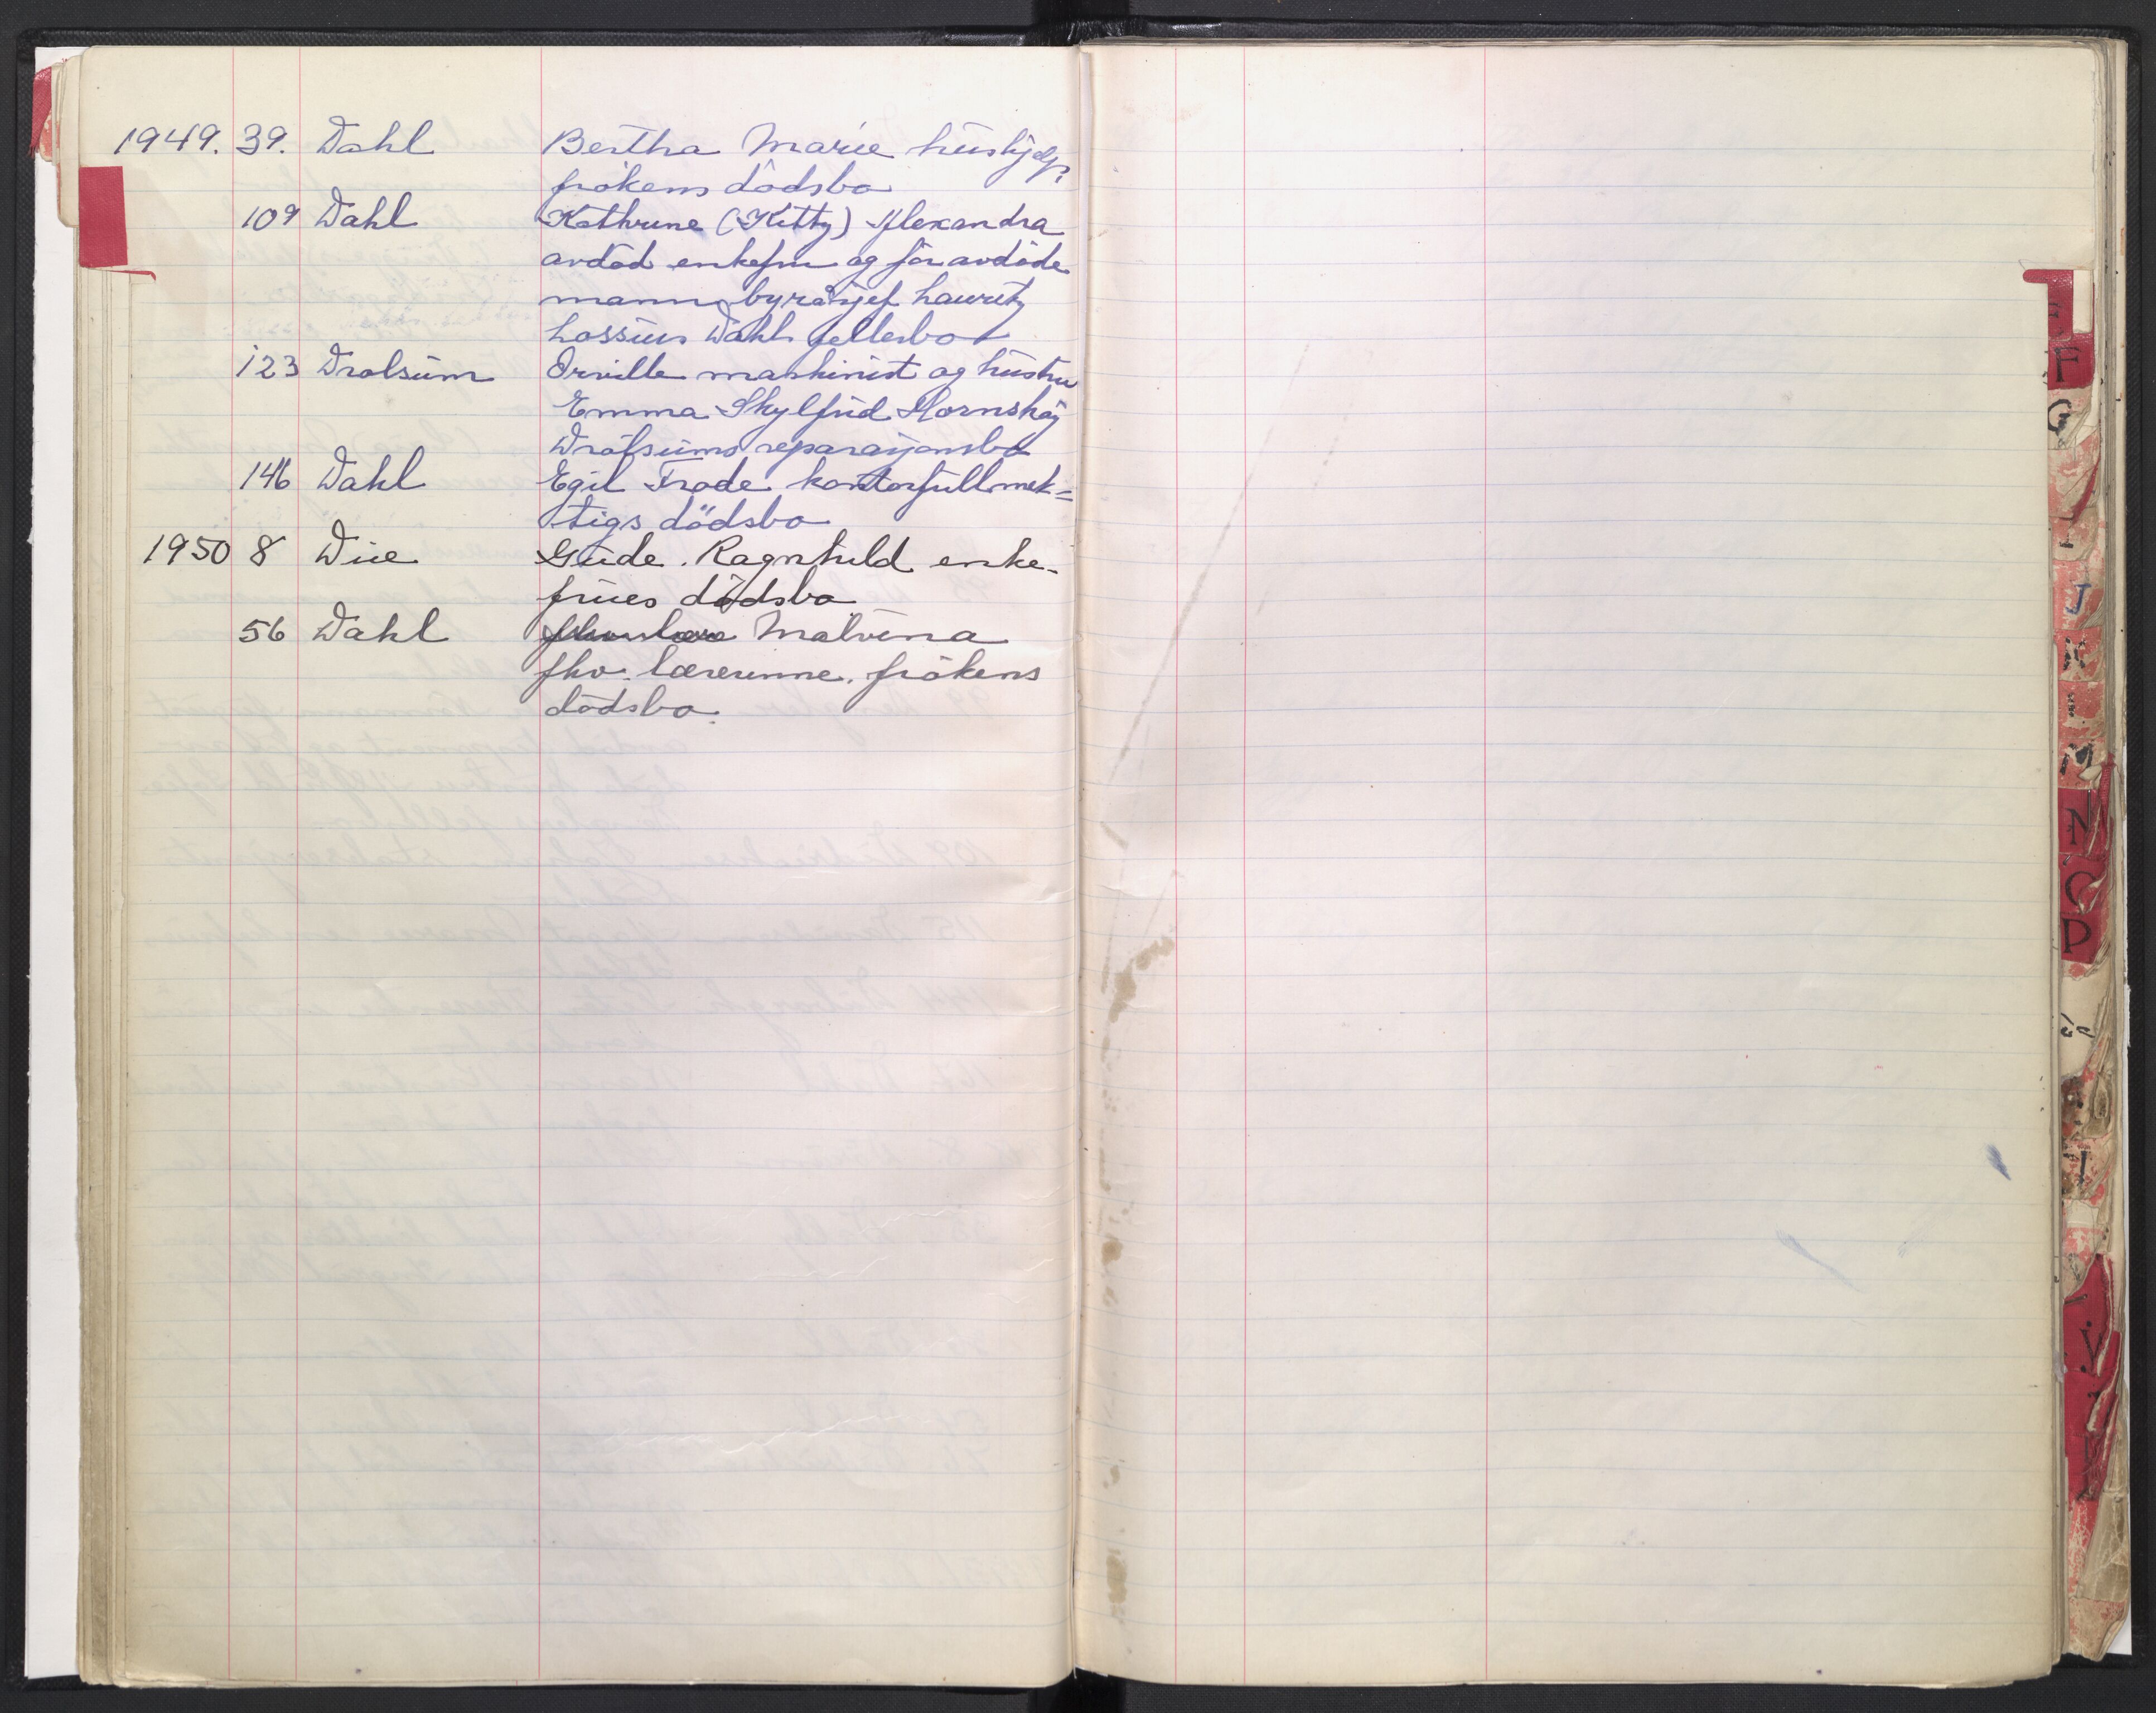 1949. 39. Dahl Bertha Marie hushjelp,
frøkens dødsbo
109 Dahl Kathrine (Kitty) Alexandra
avdød enkefru og før avdøde
mann byråsjef Lauritz
Lossius Dahls fellesbo
123 Drolsum Orville maskinist og hustru
Emma Skylfrid Hornshøj
Drolsums reparasjonsbo
146 Dahl Egil Frode kontorfullmek=
tigs dødsbo
1950 8 Due Gude. Ragnhild enke-
frues dødsbo
56 Dahl Malvina
fhv. lærerinne. frøkens
dødsbo.
F
G
J
K
L
M
N
O
P